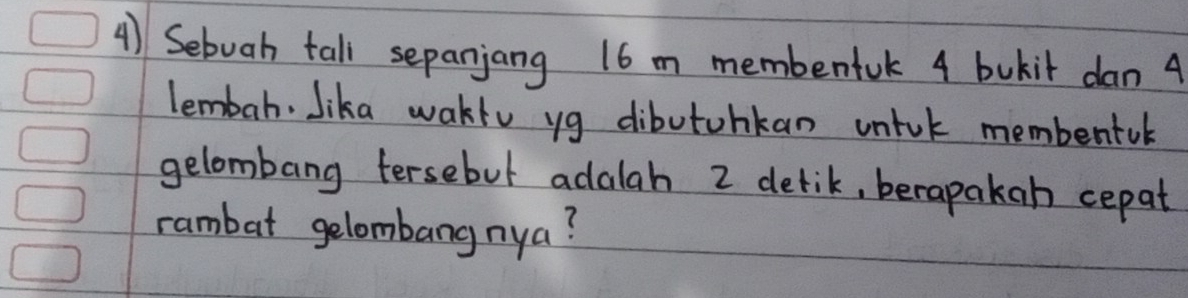 4) Sebuah tali sepanjang 16 m membentuk 4 bukit dan 4
lembah. Jika waktu yg dibutuhkan untuk membentuk
gelombang tersebut adalah 2 detik, berapakah cepat
rambat gelombangnya?